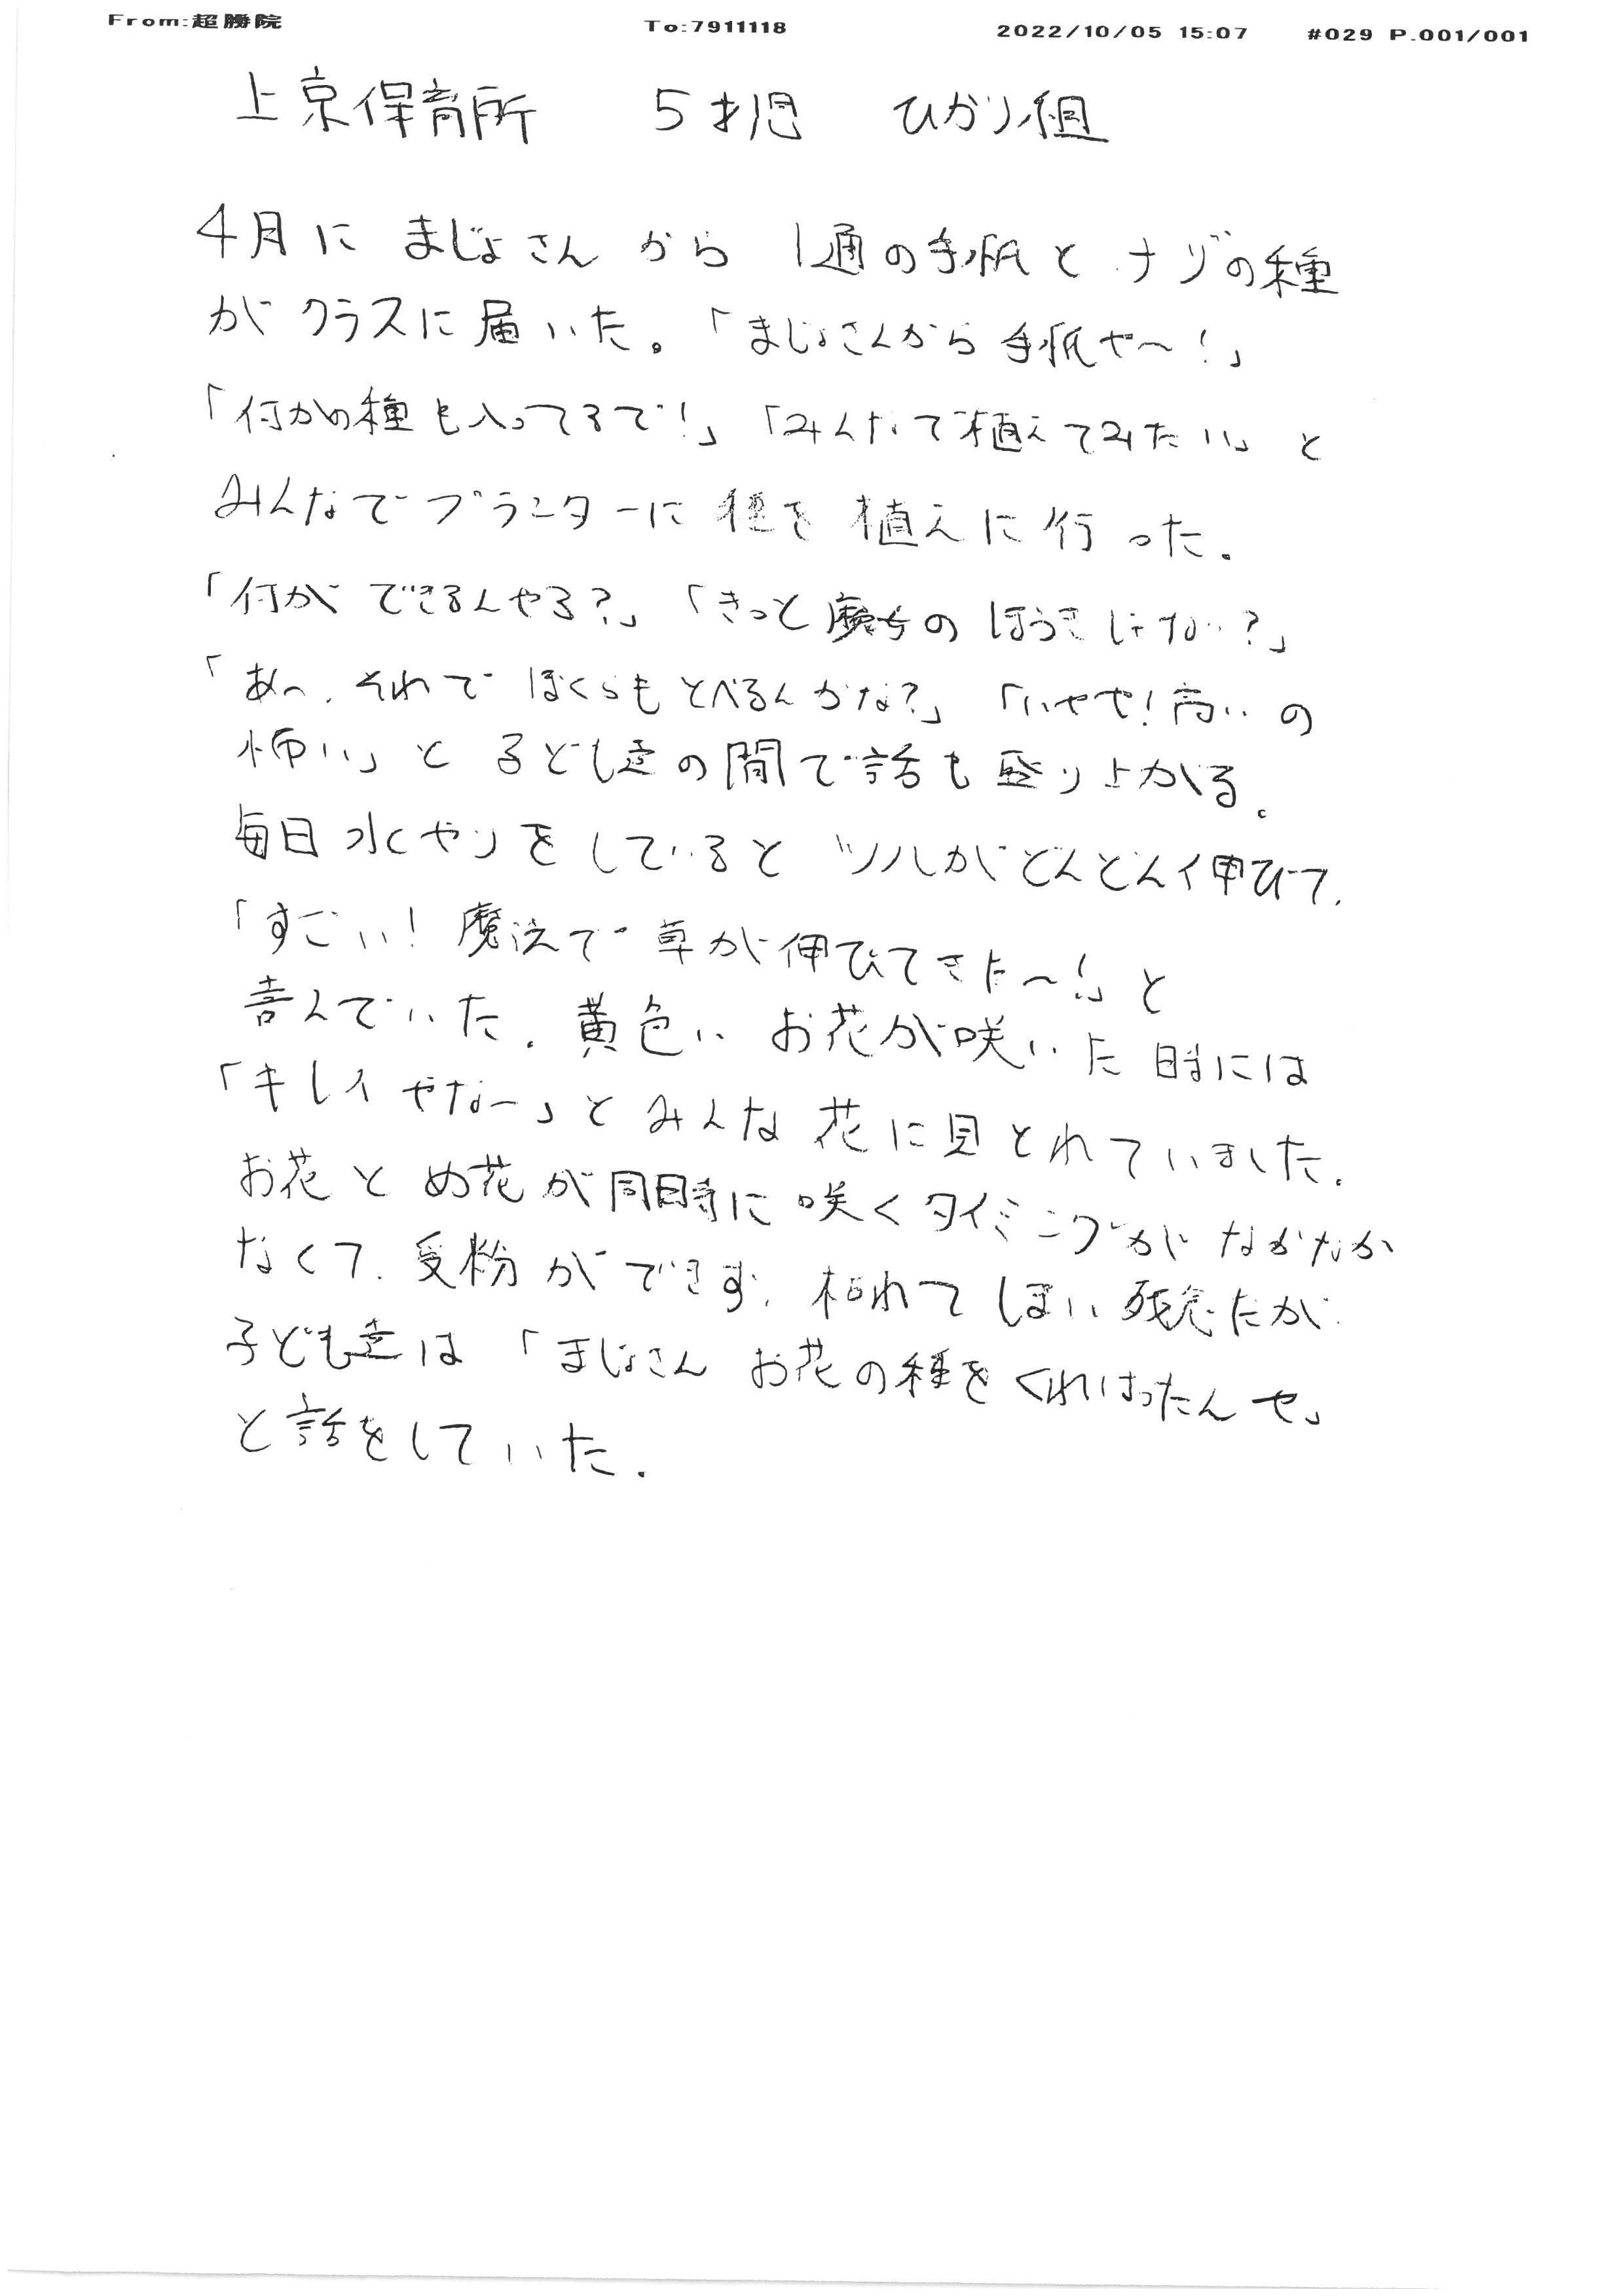 From:超勝院 To:7911118 2022/10/05 15:07 #029 P.001/001
上京保育所 5才児 ひかり組
4月に まじょさん から 1通の手紙と ナゾの種
が クラスに 届いた。「まじょさんから 手紙や〜!」
「何かの種も入ってるで!」「みんなで植えてみたい」と
みんなでプランターに 種を 植えに行った.
「何が できるんやろ?」「きっと魔女の ほうきじゃない?」
「あ〜、それで ぼくらもとべるんかな?」「いやや!高いの
怖い」と 子ども達の間で話も盛り上がる。
毎日 水やりをしていると ツルがどんどん伸びて、
「すごい! 魔法で 草が伸びてきた〜!」と
喜んでいた. 黄色い お花が咲いた時には
「キレイ やなー」と みんな 花に見とれていました.
お花と め花が同時に 咲くタイミングが なかなか
なくて、受粉ができず、枯れて しまい 残念だが、
子ども達は 「まじょさん お花の種を くれはったんや」
と話をしていた.